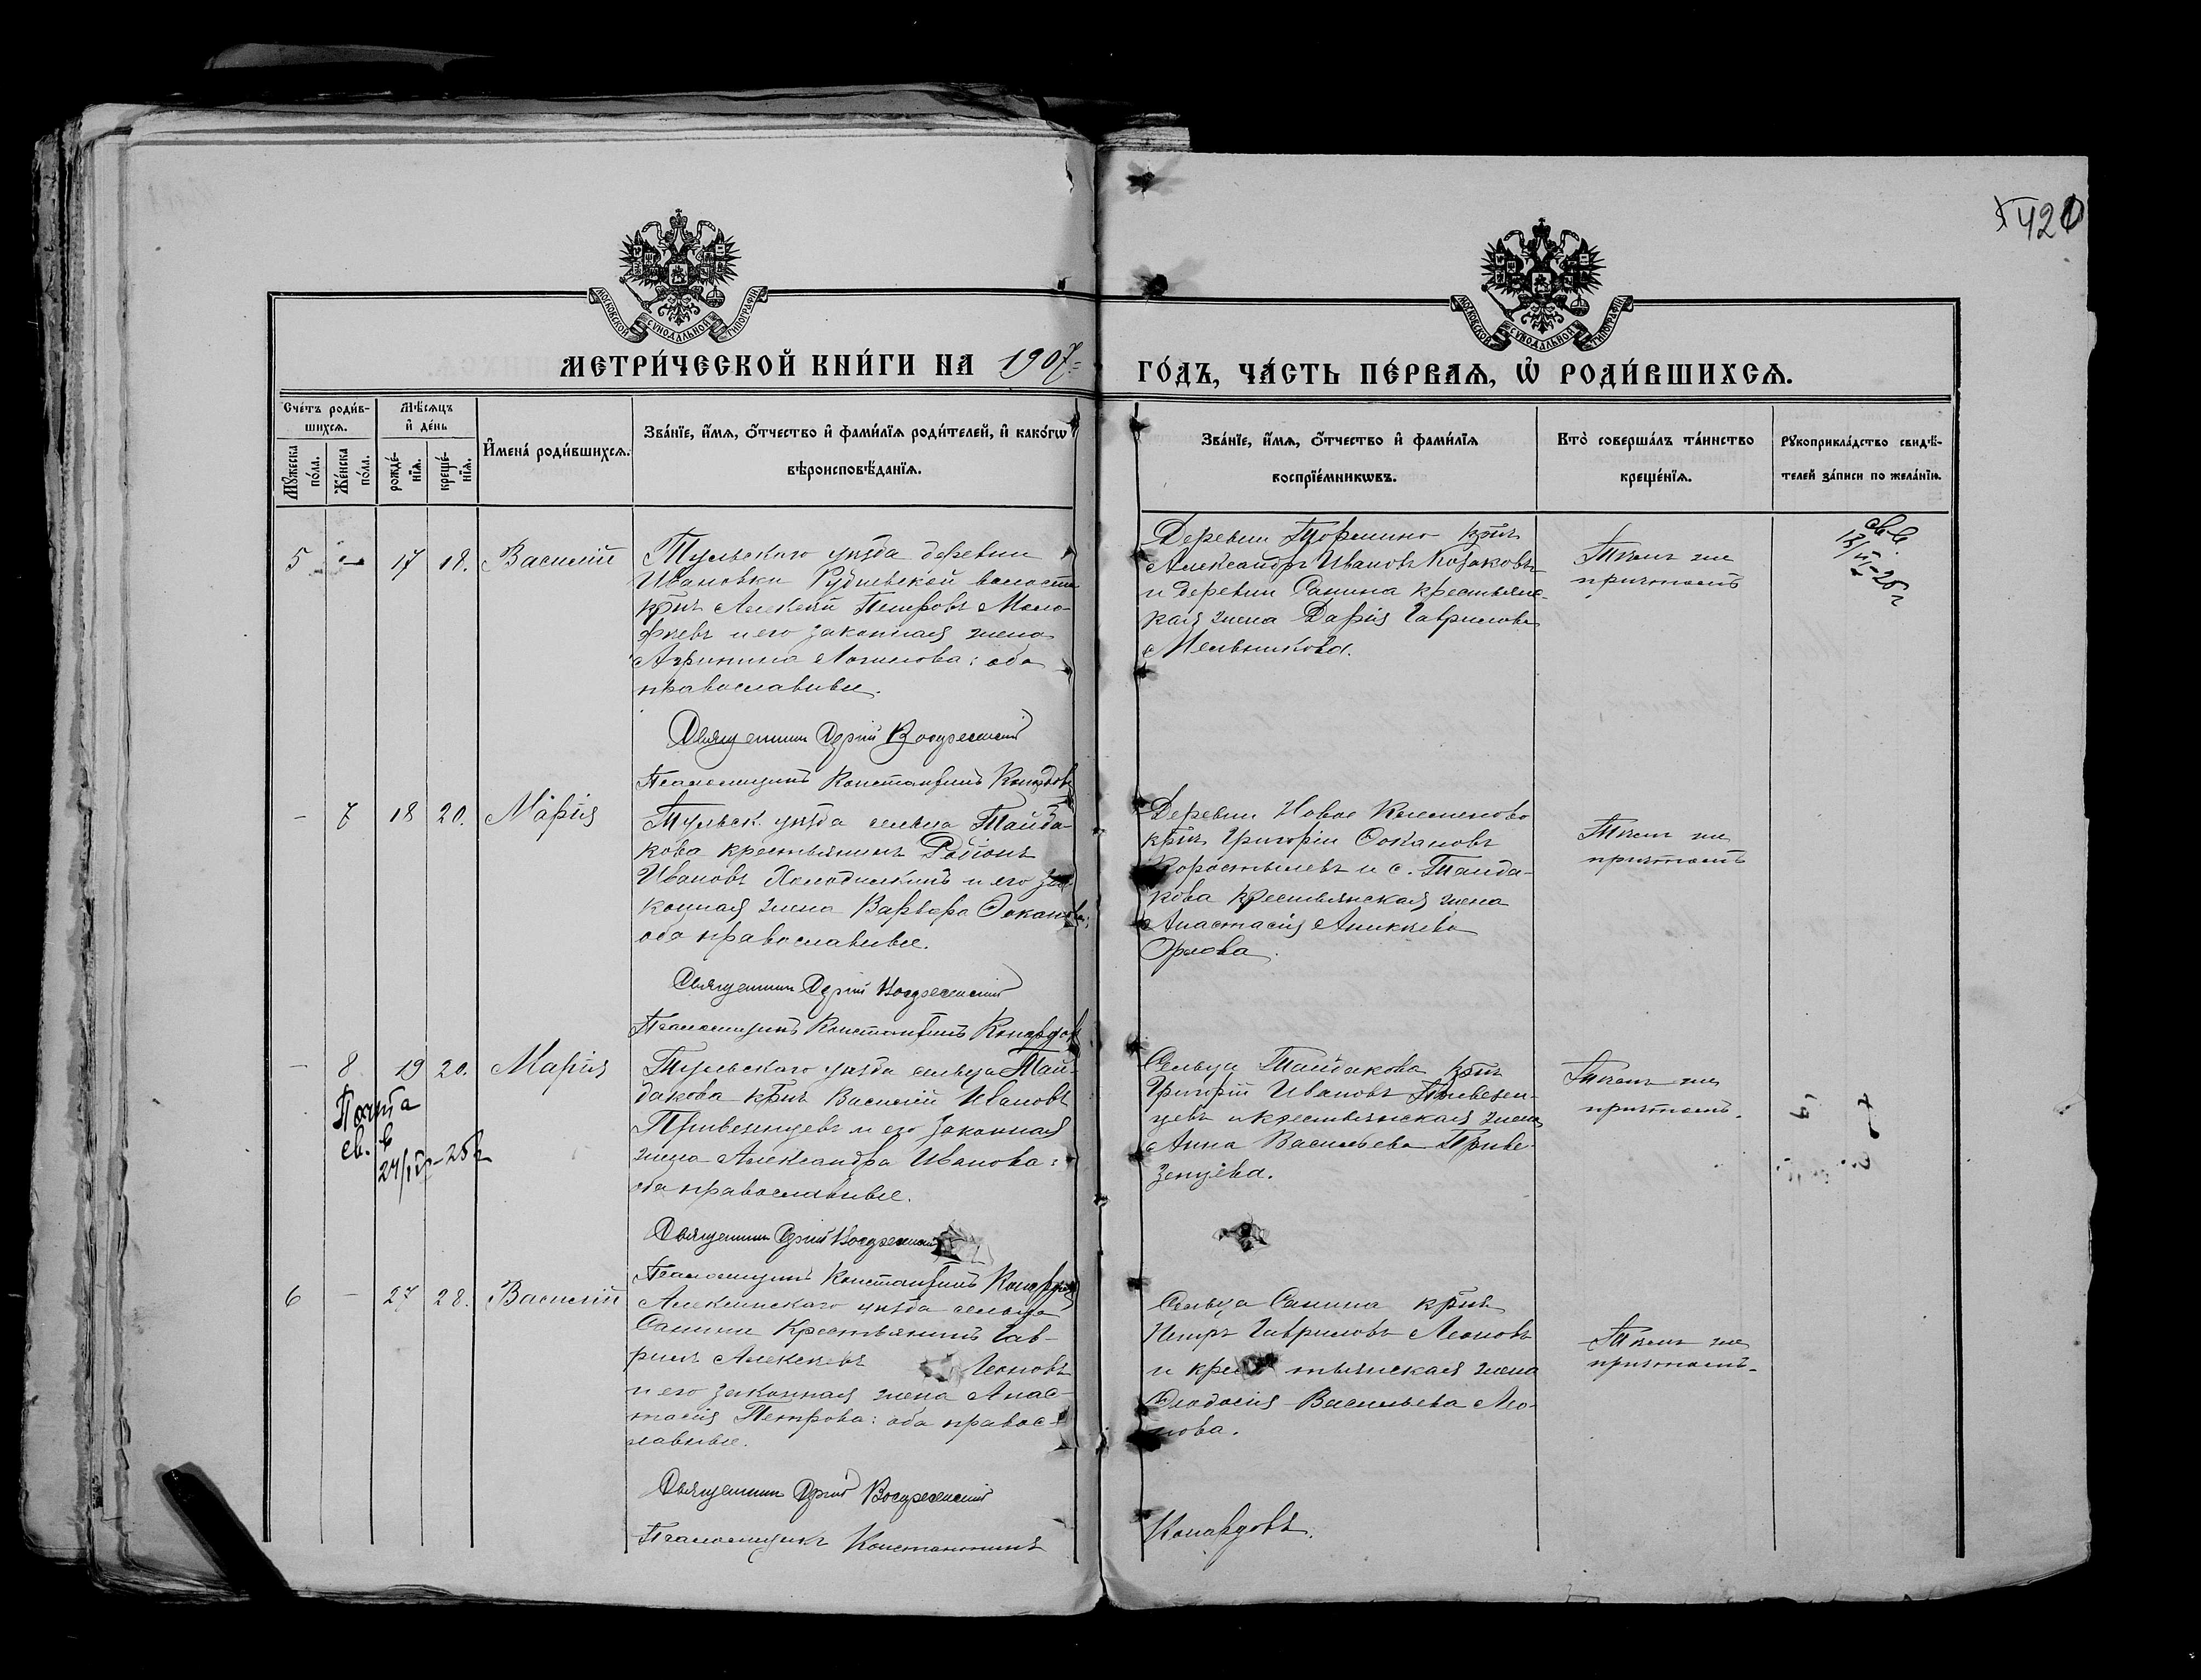 420
МОСКОВСКОЙ СУНОДАЛЬНОЙ ТИПОГРАФІИ
МОСКОВСКОЙ СУНОДАЛЬНОЙ ТИПОГРАФІИ
МЕТРИ́ЧЕСКОЙ КНИ́ГИ НА 1907
ГО́ДЪ, ЧА́СТЬ ПЕ́РВАѦ, Ѽ РОДИ́ВШИХСѦ.
Сче́тъ роди́в-
шихсѧ.
Мѣ́сѧцъ
и҆ де́нь
Мꙋ́жеска
по́ла.
Же́нска
по́ла.
рожде́-
нїѧ.
креще́-
нїѧ.
И҆мена̀ роди́вшихсѧ.
Зва́нїе, и҆́мѧ, ѻ҆́тчество и҆ фами́лїѧ роди́телей, и҆ како́гѡ
вѣроисповѣ́данїѧ.
Зва́нїе, и҆́мѧ, ѻ҆́тчество и҆ фами́лїѧ
воспрїе́мникѡвъ.
Кто̀ соверша́лъ та́инство
креще́нїѧ.
Рꙋкоприкла́дство свидѣ́-
телей за́писи по жела́нїю.
5 - 17 18. Василій
Тульскаго уѣзда деревни
Ивановки Рудневской волости
крнъ Алексѣй Петровъ Моло-
и его законная жена
Агрипина Логинова: оба
православные.
Священникъ Сергій Воскресенскій
Псаломщикъ Константинъ
Деревни крнъ
Александръ Ивановъ Козаковъ
и деревни Санина крестьянс-
кая жена Дарія Гаврилова
Мельникова.
Тѣмъ же
причтомъ
- 7 18 20. Марія
Тульск. уѣзда сельца Тайда-
кова крестьянинъ Родіонъ
Ивановъ Холодилкинъ и его за-
конная жена Варвара
оба православные.
Священникъ Сергій Воскресенскій
Псаломщикъ Константинъ
Деревни Новое Колееново
крнъ Григорій
Коростылевъ и с. Тайда-
кова крестьянская жена
Анастасія Аникѣева
Орлова.
Тѣмъ же
причтомъ
- 8 19 20. Марія
Тульскаго уѣзда сельца Тай-
дакова крнъ Василій Ивановъ
Привезенцевъ и его законная
жена Александра Иванова:
оба православные.
Священникъ Сергій Воскресенскій
Псаломщикъ Константинъ
Сельца Тайдакова крнъ
Григорій Ивановъ Привезен-
цевъ и крестьянская жена
Анна Васильева Приве-
зенцева.
Тѣмъ же
причтомъ.
6 - 27 28. Василій
Алексинскаго уѣзда сельца
Санина крестьянинъ Гав-
рилъ Алексѣевъ Леоновъ
и его законная жена Анас-
тасія Петрова: оба правос-
лавные.
Священникъ Сергій Воскресенскій
Псаломщикъ Константинъ
Сельца Санина крнъ
Петръ Гавриловъ Леоновъ
и крестьянская жена
Ѳеодосія Васильева Лео-
нова.
Тѣмъ же
причтомъ.